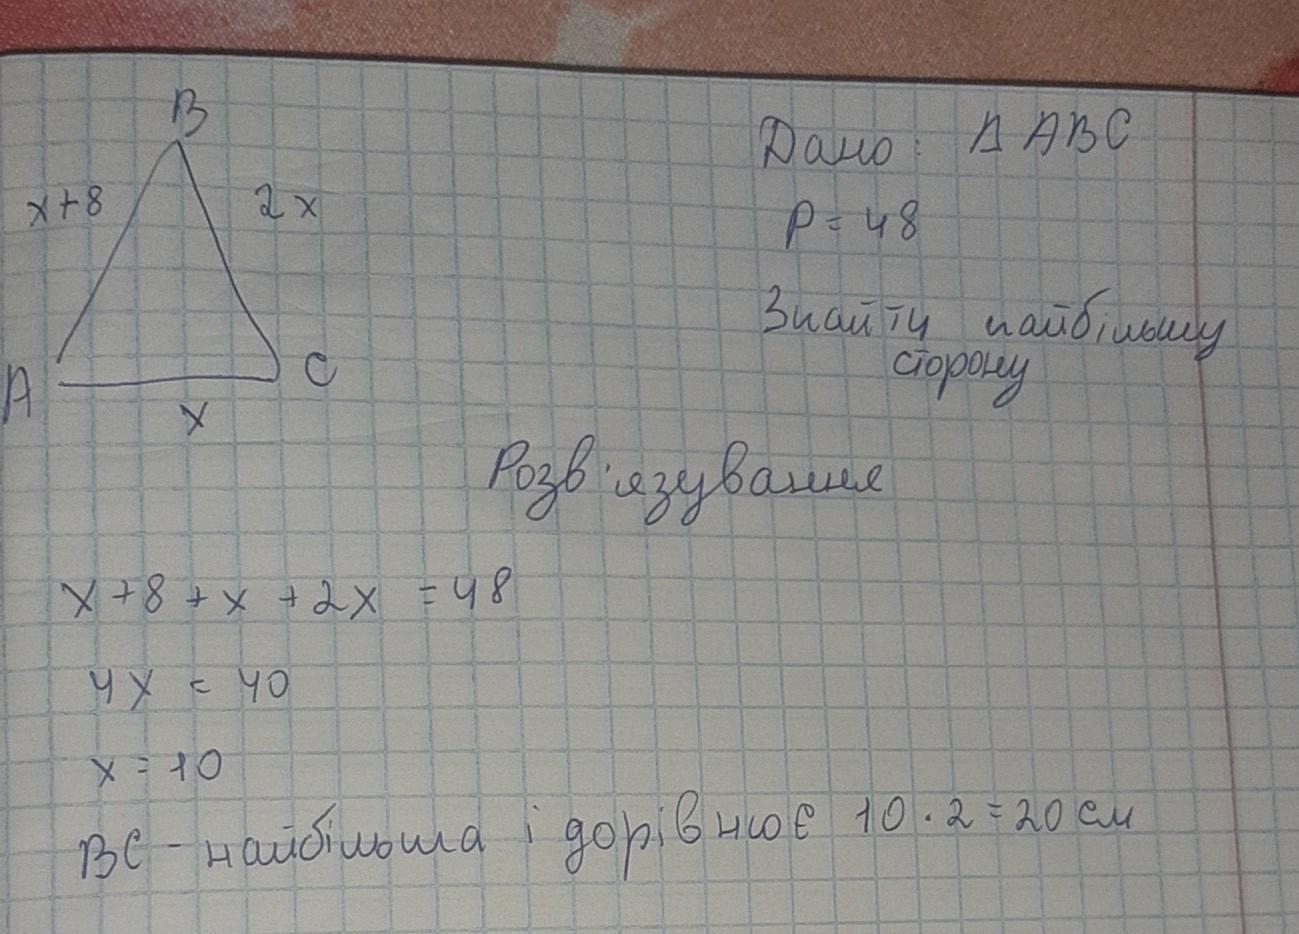 B
x+8
2x
A
C
x
Дано: Δ ABC
P = 48
Знайти найбільшу
сторону
Розв'язування
x + 8 + x + 2x = 48
4x = 40
x = 10
BC - найбільша і дорівнює 10 · 2 = 20 см